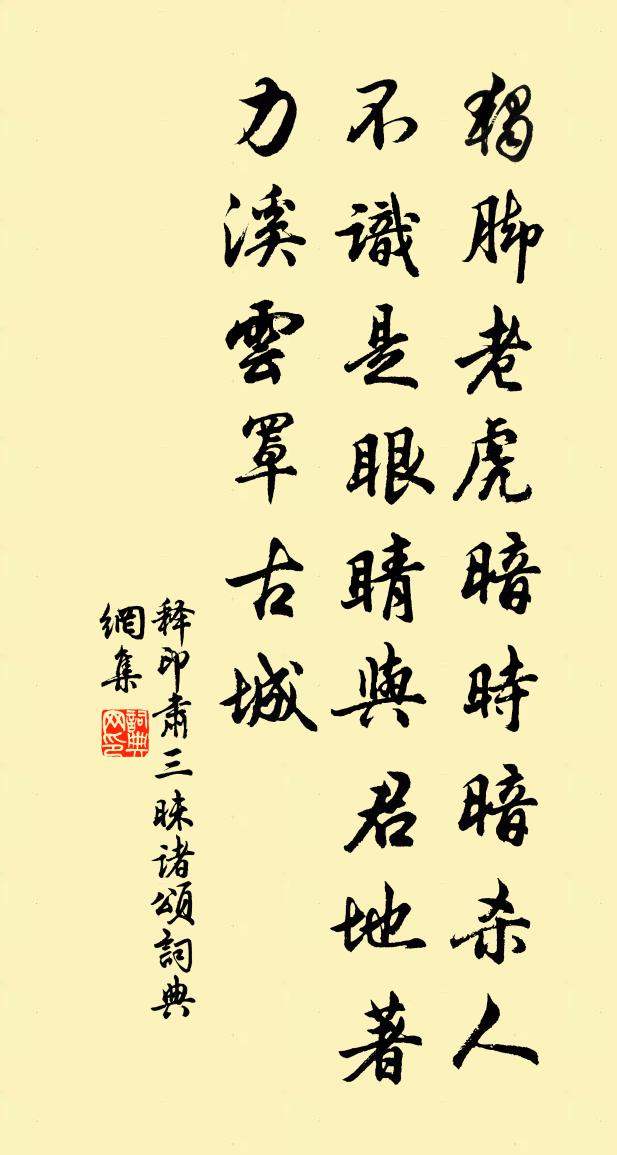 獨脚老虎暗時暗杀人
不識是眼睛與君地著
力溪雲罩古城
释印肅三昧诸頌詞典
網集
詞典網印